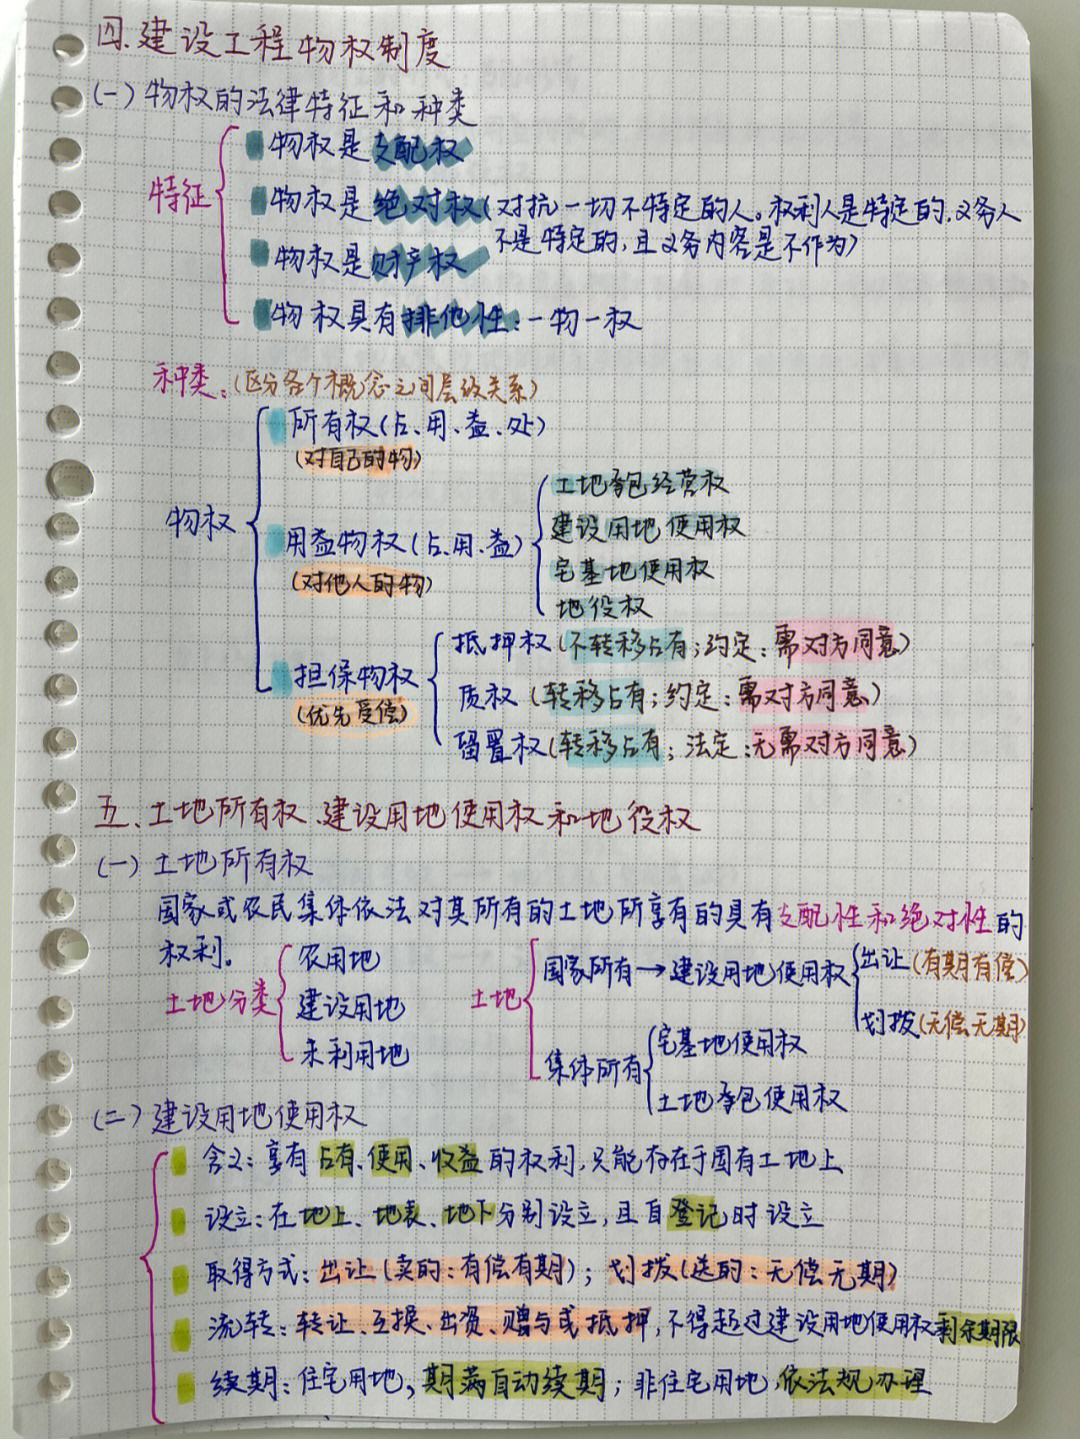 四.建设工程物权制度
(一)物权的法律特征和种类
特征
物权是支配权
物权是绝对权(对抗一切不特定的人。权利人是特定的,义务人
不是特定的,且义务内容是不作为)
物权是财产权
物权具有排他性:一物一权
种类:(区分各个概念之间层级关系)
物权
所有权(占、用、益、处)
(对自己的物)
用益物权(占、用、益)
(对他人的物)
土地承包经营权
建设用地使用权
宅基地使用权
地役权
担保物权
(优先受偿)
抵押权(不转移占有;约定:需对方同意)
质权(转移占有;约定:需对方同意)
留置权(转移占有;法定:无需对方同意)
五、土地所有权、建设用地使用权和地役权
(一)土地所有权
国家或农民集体依法对其所有的土地所享有的具有支配性和绝对性的
权利。
土地分类
农用地
建设用地
未利用地
土地
国家所有→建设用地使用权
出让(有期有偿)
划拨(无偿无期)
集体所有
宅基地使用权
土地承包使用权
(二)建设用地使用权
含义:享有占有、使用、收益的权利,只能存在于国有土地上
设立:在地上、地表、地下分别设立,且自登记时设立
取得方式:出让(卖的:有偿有期);划拨(送的:无偿无期)
流转:转让、互换、出资、赠与或抵押,不得超过建设用地使用权剩余期限
续期:住宅用地,期满自动续期;非住宅用地,依法规办理